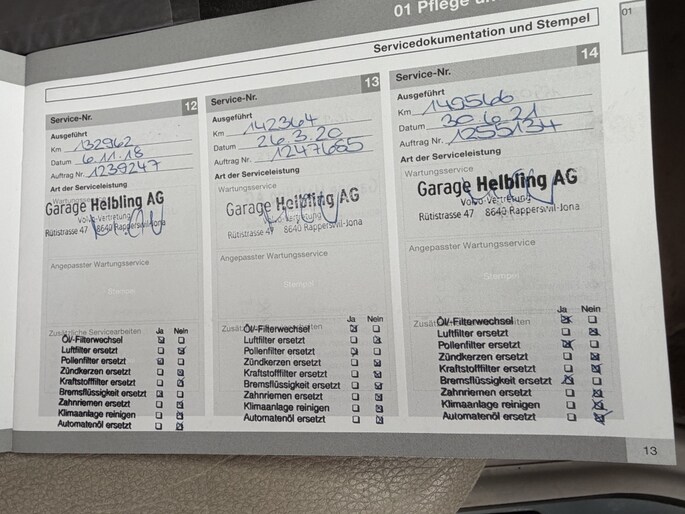 01 Pflege
Servicedokumentation und Stempel
01
Service-Nr. 12
Ausgeführt
Km 132962
Datum 6.11.18
Auftrag Nr. 1239247
Art der Serviceleistung
Garage Helbling AG
Volvo-Vertretung
Rütistrasse 47 8640 Rapperswil-Jona
Angepasster Wartungsservice
Stempel
Zusätzliche Servicearbeiten Ja Nein
Öl/-Filterwechsel
Luftfilter ersetzt
Pollenfilter ersetzt
Zündkerzen ersetzt
Kraftstofffilter ersetzt
Bremsflüssigkeit ersetzt
Zahnriemen ersetzt
Klimaanlage reinigen
Automatenöl ersetzt
Service-Nr. 13
Ausgeführt
Km 142364
Datum 26.3.20
Auftrag Nr. 1247665
Art der Serviceleistung
Wartungsservice
Garage Helbling AG
Volvo-Vertretung
Rütistrasse 47 8640 Rapperswil-Jona
Angepasster Wartungsservice
Stempel
Ja Nein
Öl/-Filterwechsel
Luftfilter ersetzt
Pollenfilter ersetzt
Zündkerzen ersetzt
Kraftstofffilter ersetzt
Bremsflüssigkeit ersetzt
Zahnriemen ersetzt
Klimaanlage reinigen
Automatenöl ersetzt
Service-Nr. 14
Ausgeführt
Km 149566
Datum 30.6.21
Auftrag Nr. 1255134
Art der Serviceleistung
Wartungsservice
Garage Helbling AG
Volvo-Vertretung
Rütistrasse 47 8640 Rapperswil-Jona
Angepasster Wartungsservice
Stempel
Ja Nein
Öl/-Filterwechsel
Luftfilter ersetzt
Pollenfilter ersetzt
Zündkerzen ersetzt
Kraftstofffilter ersetzt
Bremsflüssigkeit ersetzt
Zahnriemen ersetzt
Klimaanlage reinigen
Automatenöl ersetzt
13